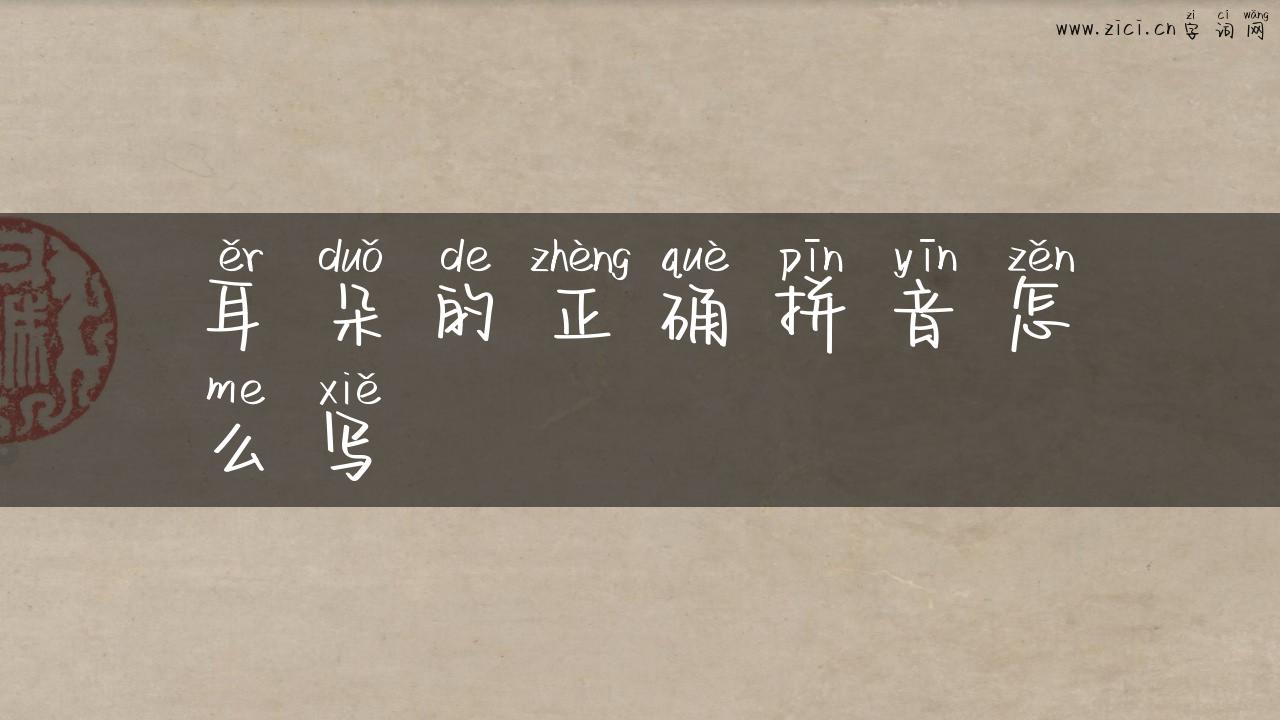 zì cí wǎng
www.zici.cn 字 词 网
ěr duǒ de zhèng què pīn yīn zěn
耳 朵 的 正 确 拼 音 怎
me xiě
么 写